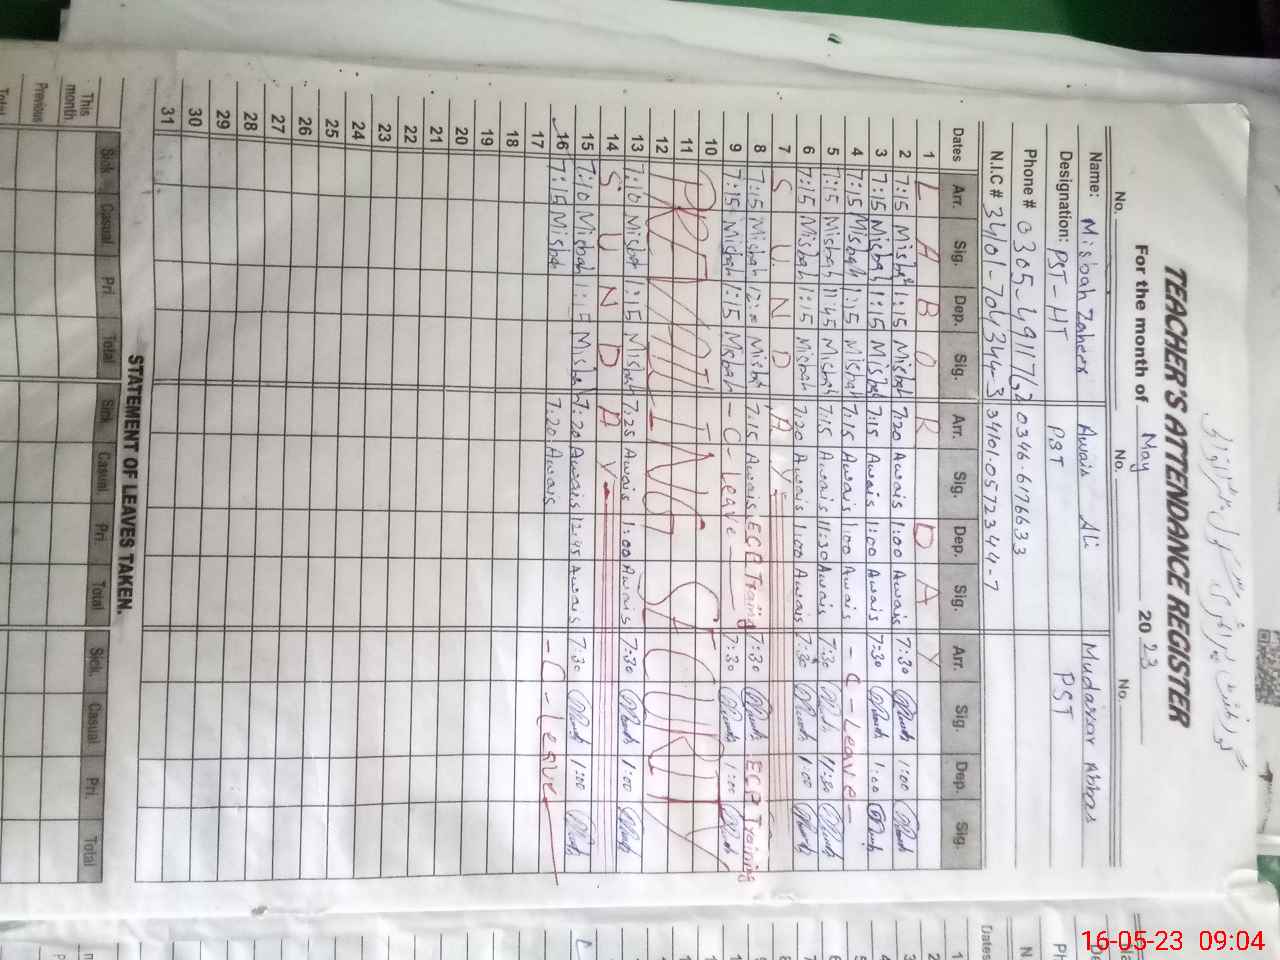 TEACHER'S ATTENDANCE REGISTER
For the month of May 2023
No. No. No.
Name: Misbah Zaheer Awais Ali Mudassar Abbas
Designation: PST-HT PST PST
Phone # 0305-4911762 0346-6176633
N.I.C # 34101-7043443 34101-0572344-7
Dates Arr. Sig. Dep. Sig. Arr. Sig. Dep. Sig. Arr. Sig. Dep. Sig.
1 L A B O R D A Y
2 7:15 Misbah 1:15 Misbah 7:20 Awais 1:00 Awais 7:30 1:00
3 7:15 Misbah 1:15 Misbah 7:15 Awais 1:00 Awais 7:30 1:00
4 7:15 Misbah 1:15 Misbah 7:15 Awais 1:00 Awais - C - Leave -
5 7:15 Misbah 11:45 Misbah 7:15 Awais 11:30 Awais 7:30 11:30
6 7:15 Misbah 1:15 Misbah 7:20 Awais 1:00 Awais 7:30 1:00
7 S U N D A Y
8 7:15 Misbah 12:00 Misbah 7:15 Awais ECE Training 7:30 ECE Training
9 7:15 Misbah 1:15 Misbah - C - Leave - 7:30 1:00
10
11 PREVAILING SECURITY
12
13 7:10 Misbah 1:15 Misbah 7:25 Awais 1:00 Awais 7:30 1:00
14 S U N D A Y
15 7:10 Misbah 1:15 Misbah 7:20 Awais 12:45 Awais 7:30 1:00
16 7:15 Misbah 7:20 Awais - C - Leave
17
18
19
20
21
22
23
24
25
26
27
28
29
30
31
STATEMENT OF LEAVES TAKEN.
Sick Casual Pri. Total Sick Casual Pri. Total Sick. Casual Pri. Total
This month
Previous
Total
Dates
1
2
16-05-23 09:04